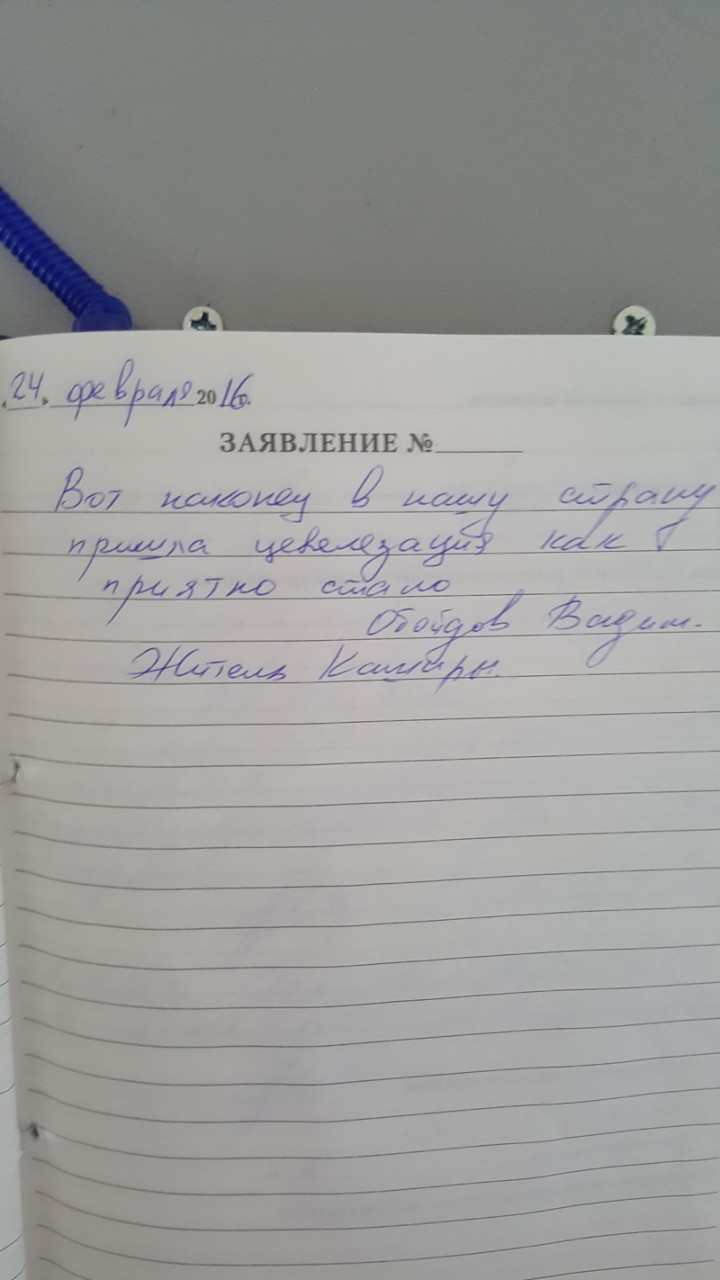 24. февраля 2016г.
ЗАЯВЛЕНИЕ №
Вот наконец в нашу страну
пришла цевелезация как
приятно стало
Обойдов Вадим.
Житель Каширы.